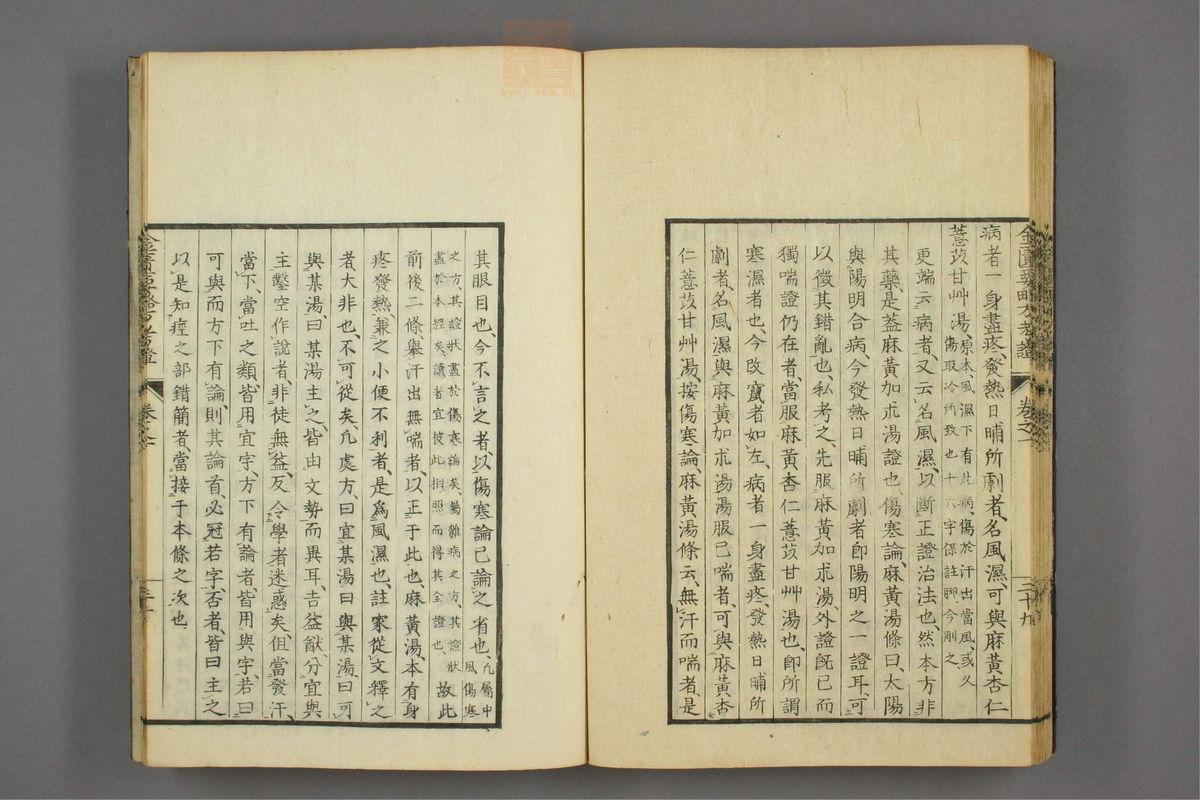 金匱要略方考證 卷之一 二十九
病者一身盡疼、發熱日晡所劇者、名風濕、可與麻黃杏仁
薏苡甘艸湯 原本、風濕下有此病、傷於汗出當風、或久
傷取冷所致也十六字係註脚今刪之、
更端云病者、又云名風濕、以斷正證治法也然本方非
其藥、是葢麻黃加朮湯證也、傷寒論、麻黃湯條曰、太陽
與陽明合病、今發熱日晡所劇者卽陽明之一證耳、可
以徵其錯亂也、私考之、先服麻黃加朮湯、外證旣已而
獨喘證仍在者、當服麻黃杏仁薏苡甘艸湯也、卽所謂
寒濕者也、今改竄者如左、病者一身盡疼、發熱日晡所
劇者、名風濕與麻黃加朮湯湯服已喘者、可與麻黃杏
仁薏苡甘艸湯按傷寒論、麻黃湯條云、無汗而喘者、是
其眼目也、今不言之者、以傷寒論已論之省也、凡屬中風傷寒
之方、其證狀盡於傷寒論矣、屬雜病之方、其證狀
盡於本經矣、讀者宜彼此相照而得其全證也、 故此
前後二條、舉汗出無喘者、以正于此也、麻黃湯、本有身
疼發熱、兼之小便不利者、是爲風濕也、註家從文釋之
者大非也、不可從矣、凡處方、曰宜某湯曰與某湯、曰可
與某湯、曰某湯主之、皆由文勢而異耳、吉益猷、分宜與
主鑿空作說者、非徒無益、反令學者迷惑矣、但當發汗、
當下、當吐之類、皆用宜字、方下有論者、皆用與字、若曰
可與而方下有論、則其論首、必冠若字、否者、皆曰主之
以是知痙之部錯簡者、當接于本條之次也、
金匱要略方考證 卷之一